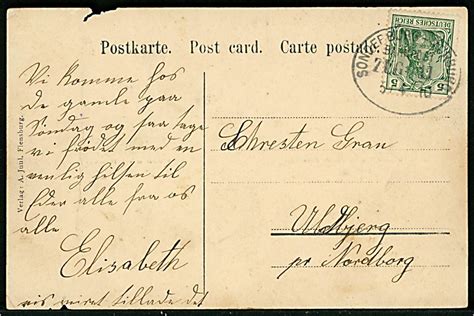 Postkarte. Post card. Carte postale
DEUTSCHES REICH
5 5
Verlag: A. Juul, Flensburg.
Vi komme hos
de gamle paa
Söndag og saa tage
vi födet med en
venlig hilsen til
Eder alle fra os
alle
Elisabeth
tillade det
Chresten Grau
Uldbjerg
pr Nordborg